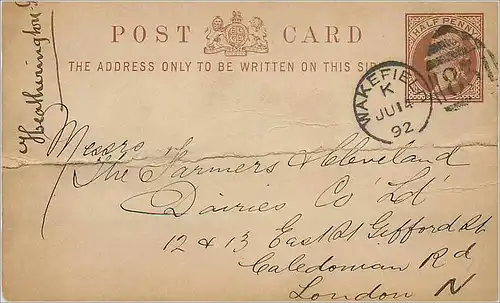 Heatherington
POST CARD
HALF PENNY
THE ADDRESS ONLY TO BE WRITTEN ON THIS SID
WAKEFIE
K
JU 14
92
Messrs
The Farmers & Cleveland
Dairies Co Ld
12 & 13 East St Gifford St
Caledonian Rd
London N